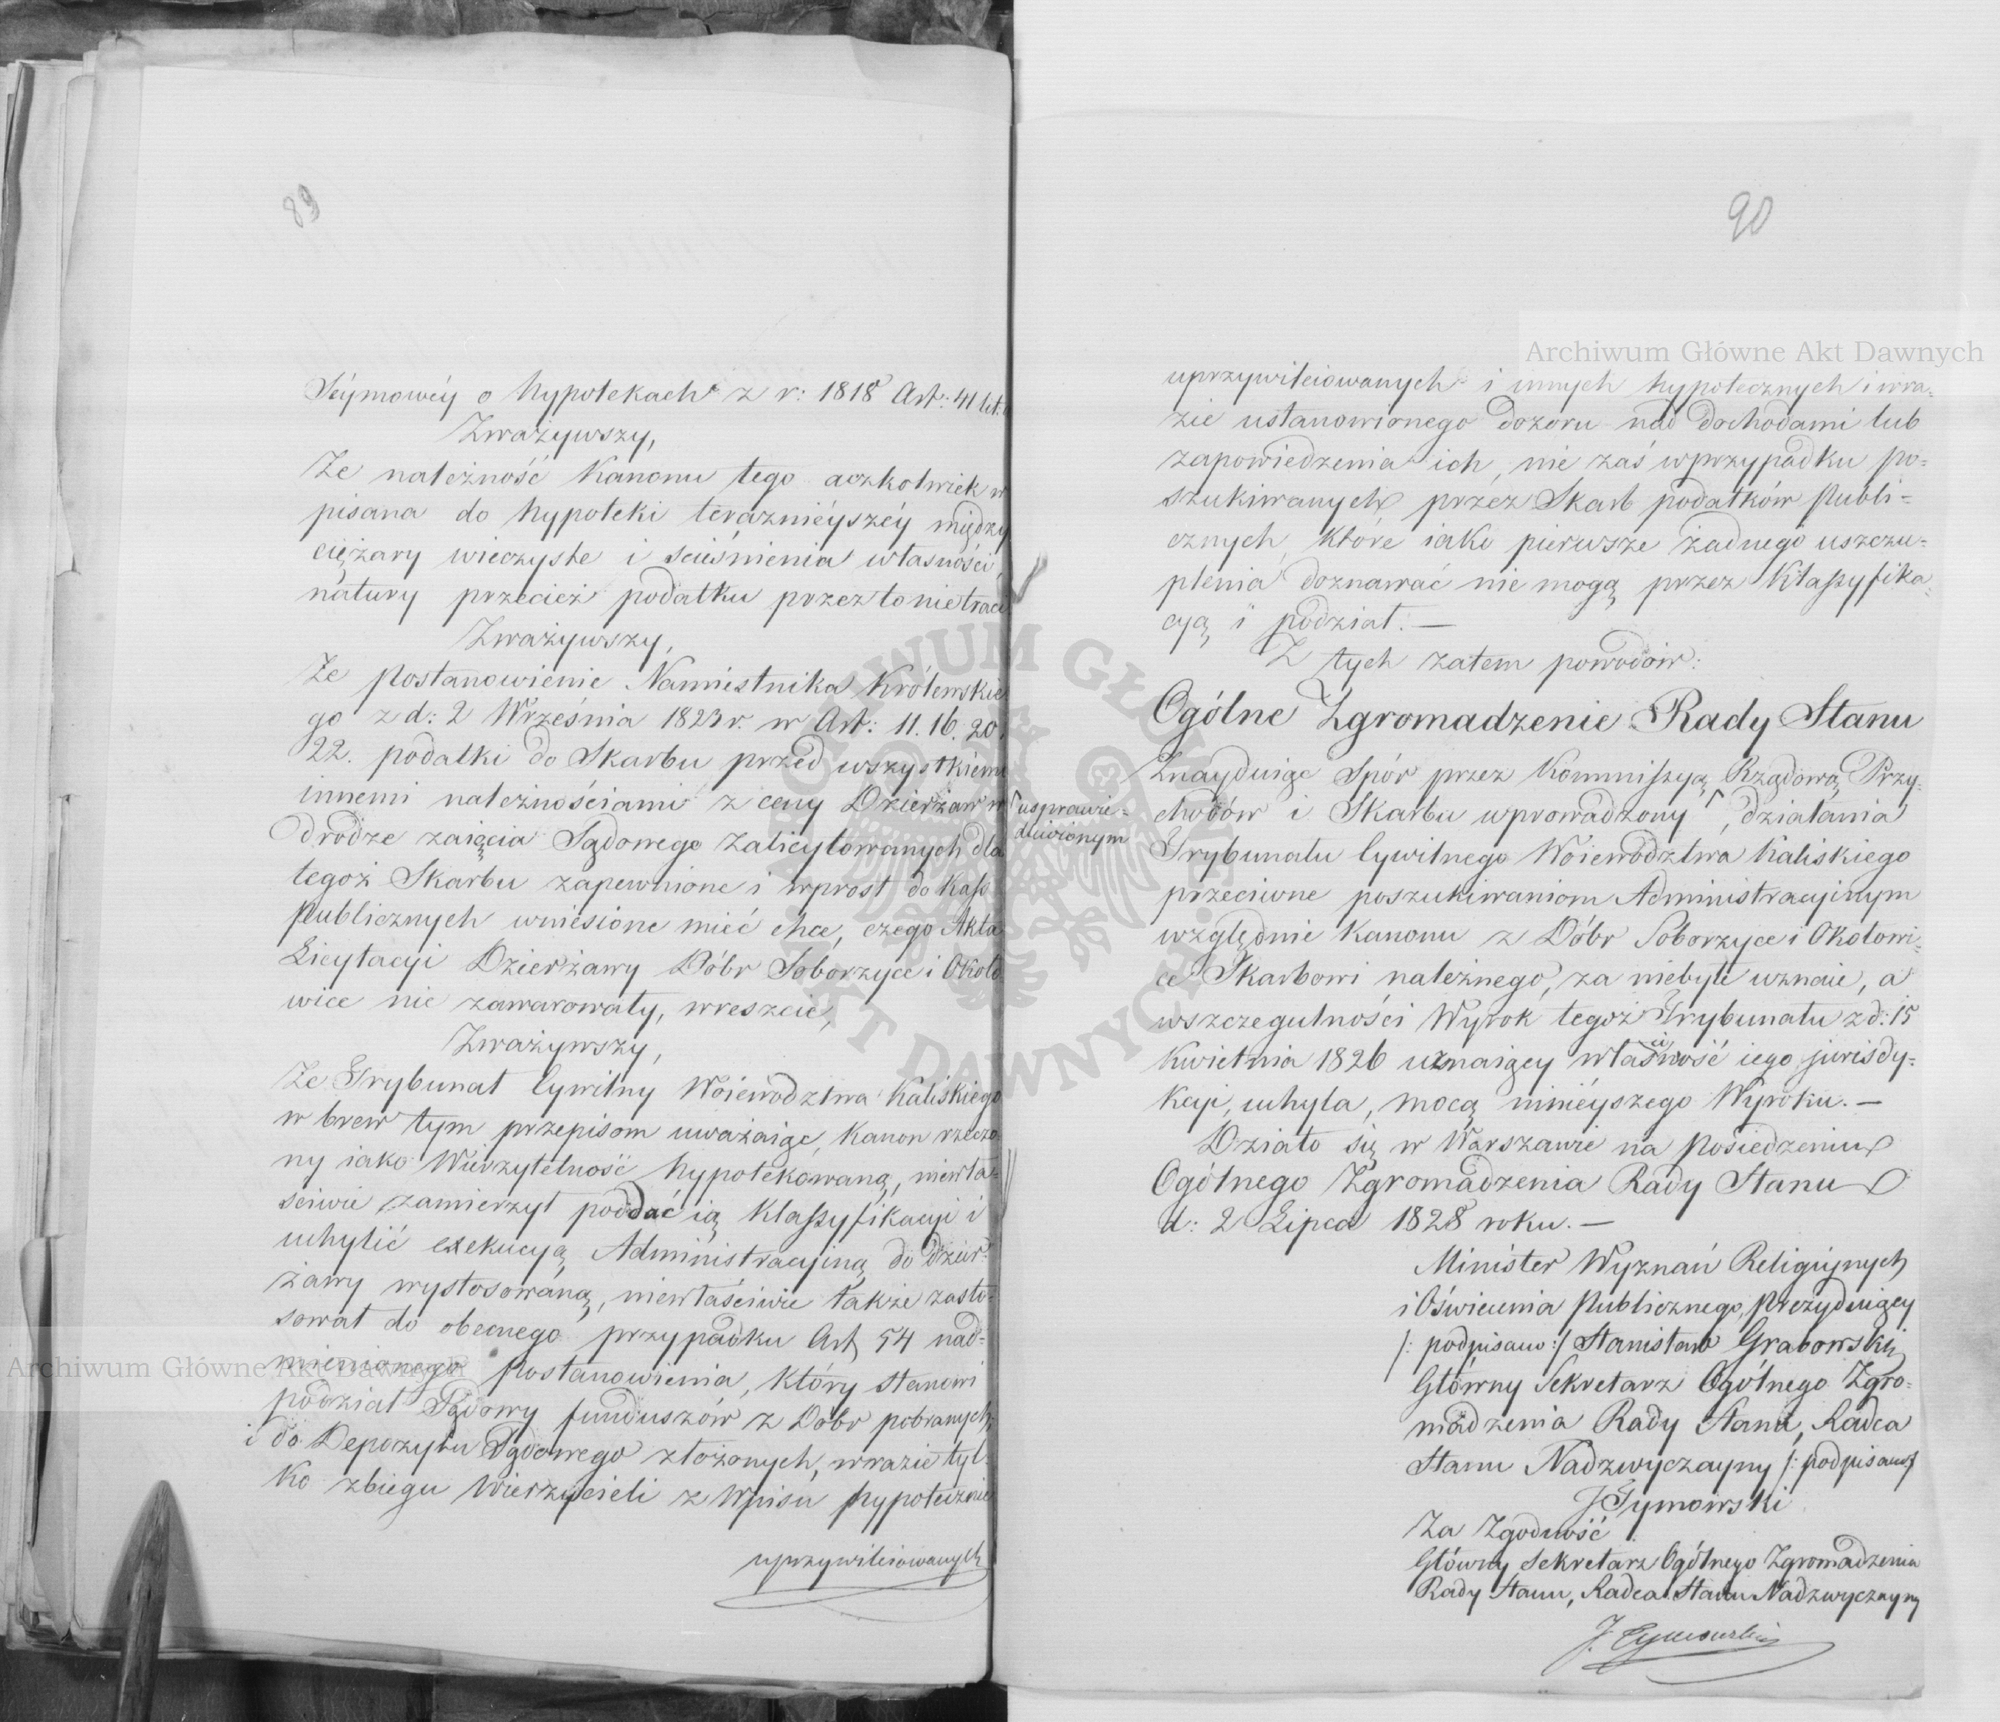 89
Séymowéy o hypotekach z r: 1818 Art: 41 lit.
Zważywszy,
Że należność Kanonu tego aczkolwiek w
pisana do hypoteki teraznieyszéy między
ciężary wieczyste i scieśnienia własności,
natury przecież podatku przez to nie traci
Zważywszy,
Że Postanowienie Namiestnika Królewskie
go z d: 2 Września 1823 r. w Art: 11. 16. 20.
22. podatki do Skarbu przed wszystkiemi
innemi należnościami z ceny Dzierżaw w
drodze zaięcia Sądowego zalicytowanych dla
tegoż Skarbu zapewnione i wprost do Kass
Publicznych wniesione mieć chce, czego Akta
Licytacyi Dzierżawy Dóbr Soborzyce i Około
wice nie zawarowały, wreszcie,
Zważywszy,
Że Trybunał Cywilny Woiewództwa Kaliskiego
w brew tym przepisom uważaiąc, Kanon rzeczo
ny iako Wierzytelność hypotekowaną, niewła-
sciwie zamierzył poddać ią Klassyfikacyi i
uchylić exekucyą Administracyiną do dzier-
żawy wystosowaną, niewłaściwie także zasto-
sował do obecnego przypadku Art 54 nad-
mienionego Postanowienia, który stanowi
podział Sądowy funduszów z Dóbr pobranych
i do Depozytu Sądowego złożonych, w razie tyl-
ko zbiegu Wierzycieli z Wpisu hypotecznie
uprzywileiowanych
90
uprzywileiowanych i innych hypotecznych i w ra-
zie ustanowionego dozoru nad dochodami lub
zapowiedzenia ich, nie zaś w przypadku po-
szukiwanych przez Skarb podatków Publi-
cznych, które iako pierwsze żadnego uszczu-
plenia doznawać nie mogą przez Klassyfika-
cyą i podział. —
Z tych zatem powodów:
Ogólne Zgromadzenie Rady Stanu
Znayduiąc Spór przez Kommissyą Rządową Przy-
chodów i Skarbu wprowadzony ⌈, działania
⌈ usprawie-
dliwionym
Trybunału Cywilnego Woiewództwa Kaliskiego
przeciwne poszukiwaniom Administracyinym
względnie Kanonu z Dóbr Soborzyce i Okołowi-
ce Skarbowi należnego, za niebyłe uznaie, a
wszczegulności Wyrok tegoż Trybunału z d: 15
Kwietnia 1826 uznaiący własność iego jurisdy-
kcyi, uchyla, mocą ninieyszego Wyroku. —
Działo się w Warszawie na Posiedzeniu
Ogólnego Zgromadzenia Rady Stanu
d: 2 Lipca 1828 roku. —
Minister Wyznań Religiynych
i Oświecenia Publicznego, Prezyduiący
/: podpisano :/ Stanisław Grabowski
Główny Sekretarz Ogólnego Zgro-
madzenia Rady Stanu, Radca
Stanu Nadzwyczayny /: podpisano :/
J Tymowski
Za Zgodność
Główny Sekretarz Ogólnego Zgromadzenia
Rady Stanu, Radca Stanu Nadzwyczayny
J. Tymowski
Archiwum Główne Akt Dawnych
Archiwum Główne Akt Dawnych
ARCHIWUM GŁÓWNE AKT DAWNYCH